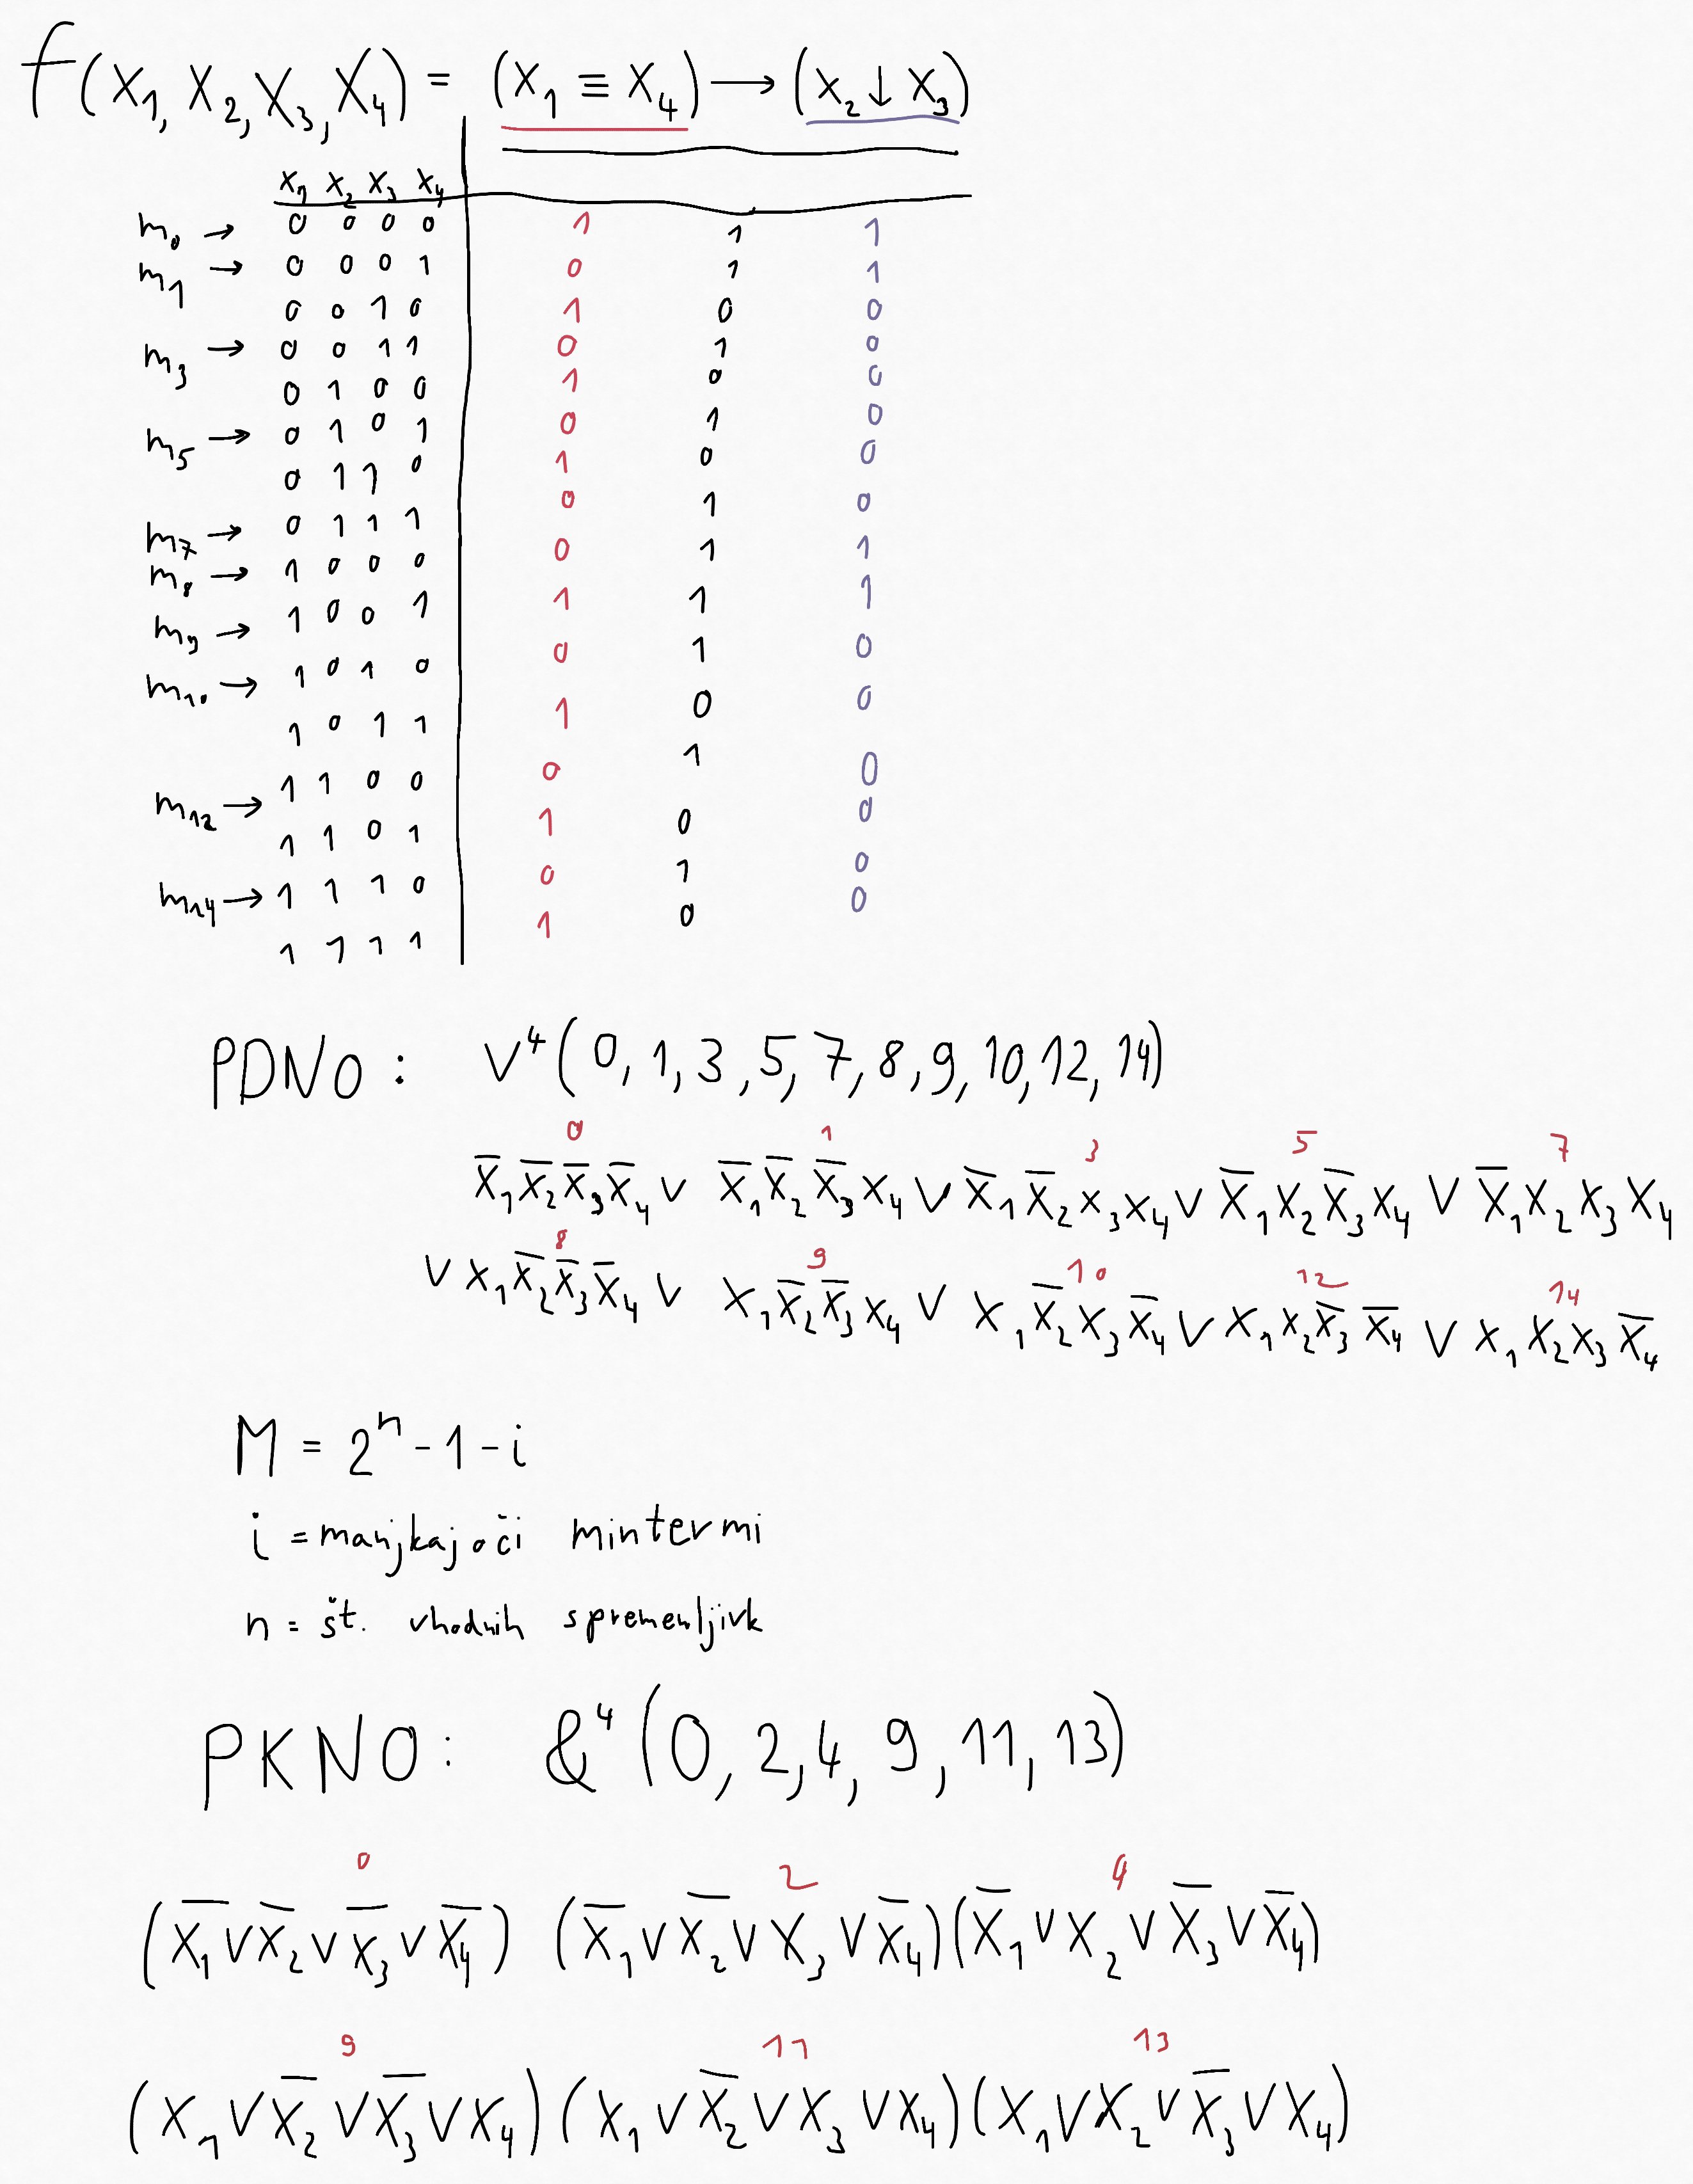 f(x₁, x₂, x₃, x₄) = (x₁ ≡ x₄) → (x₂ ↓ x₃)
x₁ x₂ x₃ x₄
m₀ → 0 0 0 0 1 1 1
m₁ → 0 0 0 1 0 1 1
0 0 1 0 1 0 0
m₃ → 0 0 1 1 0 1 0
0 1 0 0 1 0 0
m₅ → 0 1 0 1 0 1 0
0 1 1 0 1 0 0
m₇ → 0 1 1 1 0 1 0
m₈ → 1 0 0 0 0 1 1
m₉ → 1 0 0 1 1 1 1
m₁₀ → 1 0 1 0 0 1 0
1 0 1 1 1 0 0
m₁₂ → 1 1 0 0 0 1 0
1 1 0 1 1 0 0
m₁₄ → 1 1 1 0 0 1 0
1 1 1 1 1 0 0
PDNO: V⁴(0, 1, 3, 5, 7, 8, 9, 10, 12, 14)
0 1 3 5 7
x̅₁x̅₂x̅₃x̅₄ ∨ x̅₁x̅₂x̅₃x₄ ∨ x̅₁x̅₂x₃x₄ ∨ x̅₁x₂x̅₃x₄ ∨ x̅₁x₂x₃x₄
8 9 10 12 14
∨ x₁x̅₂x̅₃x̅₄ ∨ x₁x̅₂x̅₃x₄ ∨ x₁x̅₂x₃x̅₄ ∨ x₁x₂x̅₃x̅₄ ∨ x₁x₂x₃x̅₄
M = 2ⁿ - 1 - i
i = manjkajoči mintermi
n = št. vhodnih spremenljivk
PKNO: &⁴(0, 2, 4, 9, 11, 13)
0 2 4
(x̅₁ ∨ x̅₂ ∨ x̅₃ ∨ x̅₄) (x̅₁ ∨ x̅₂ ∨ x₃ ∨ x̅₄)(x̅₁ ∨ x₂ ∨ x̅₃ ∨ x̅₄)
9 11 13
(x₁ ∨ x̅₂ ∨ x̅₃ ∨ x₄)(x₁ ∨ x̅₂ ∨ x₃ ∨ x₄)(x₁ ∨ x₂ ∨ x̅₃ ∨ x₄)